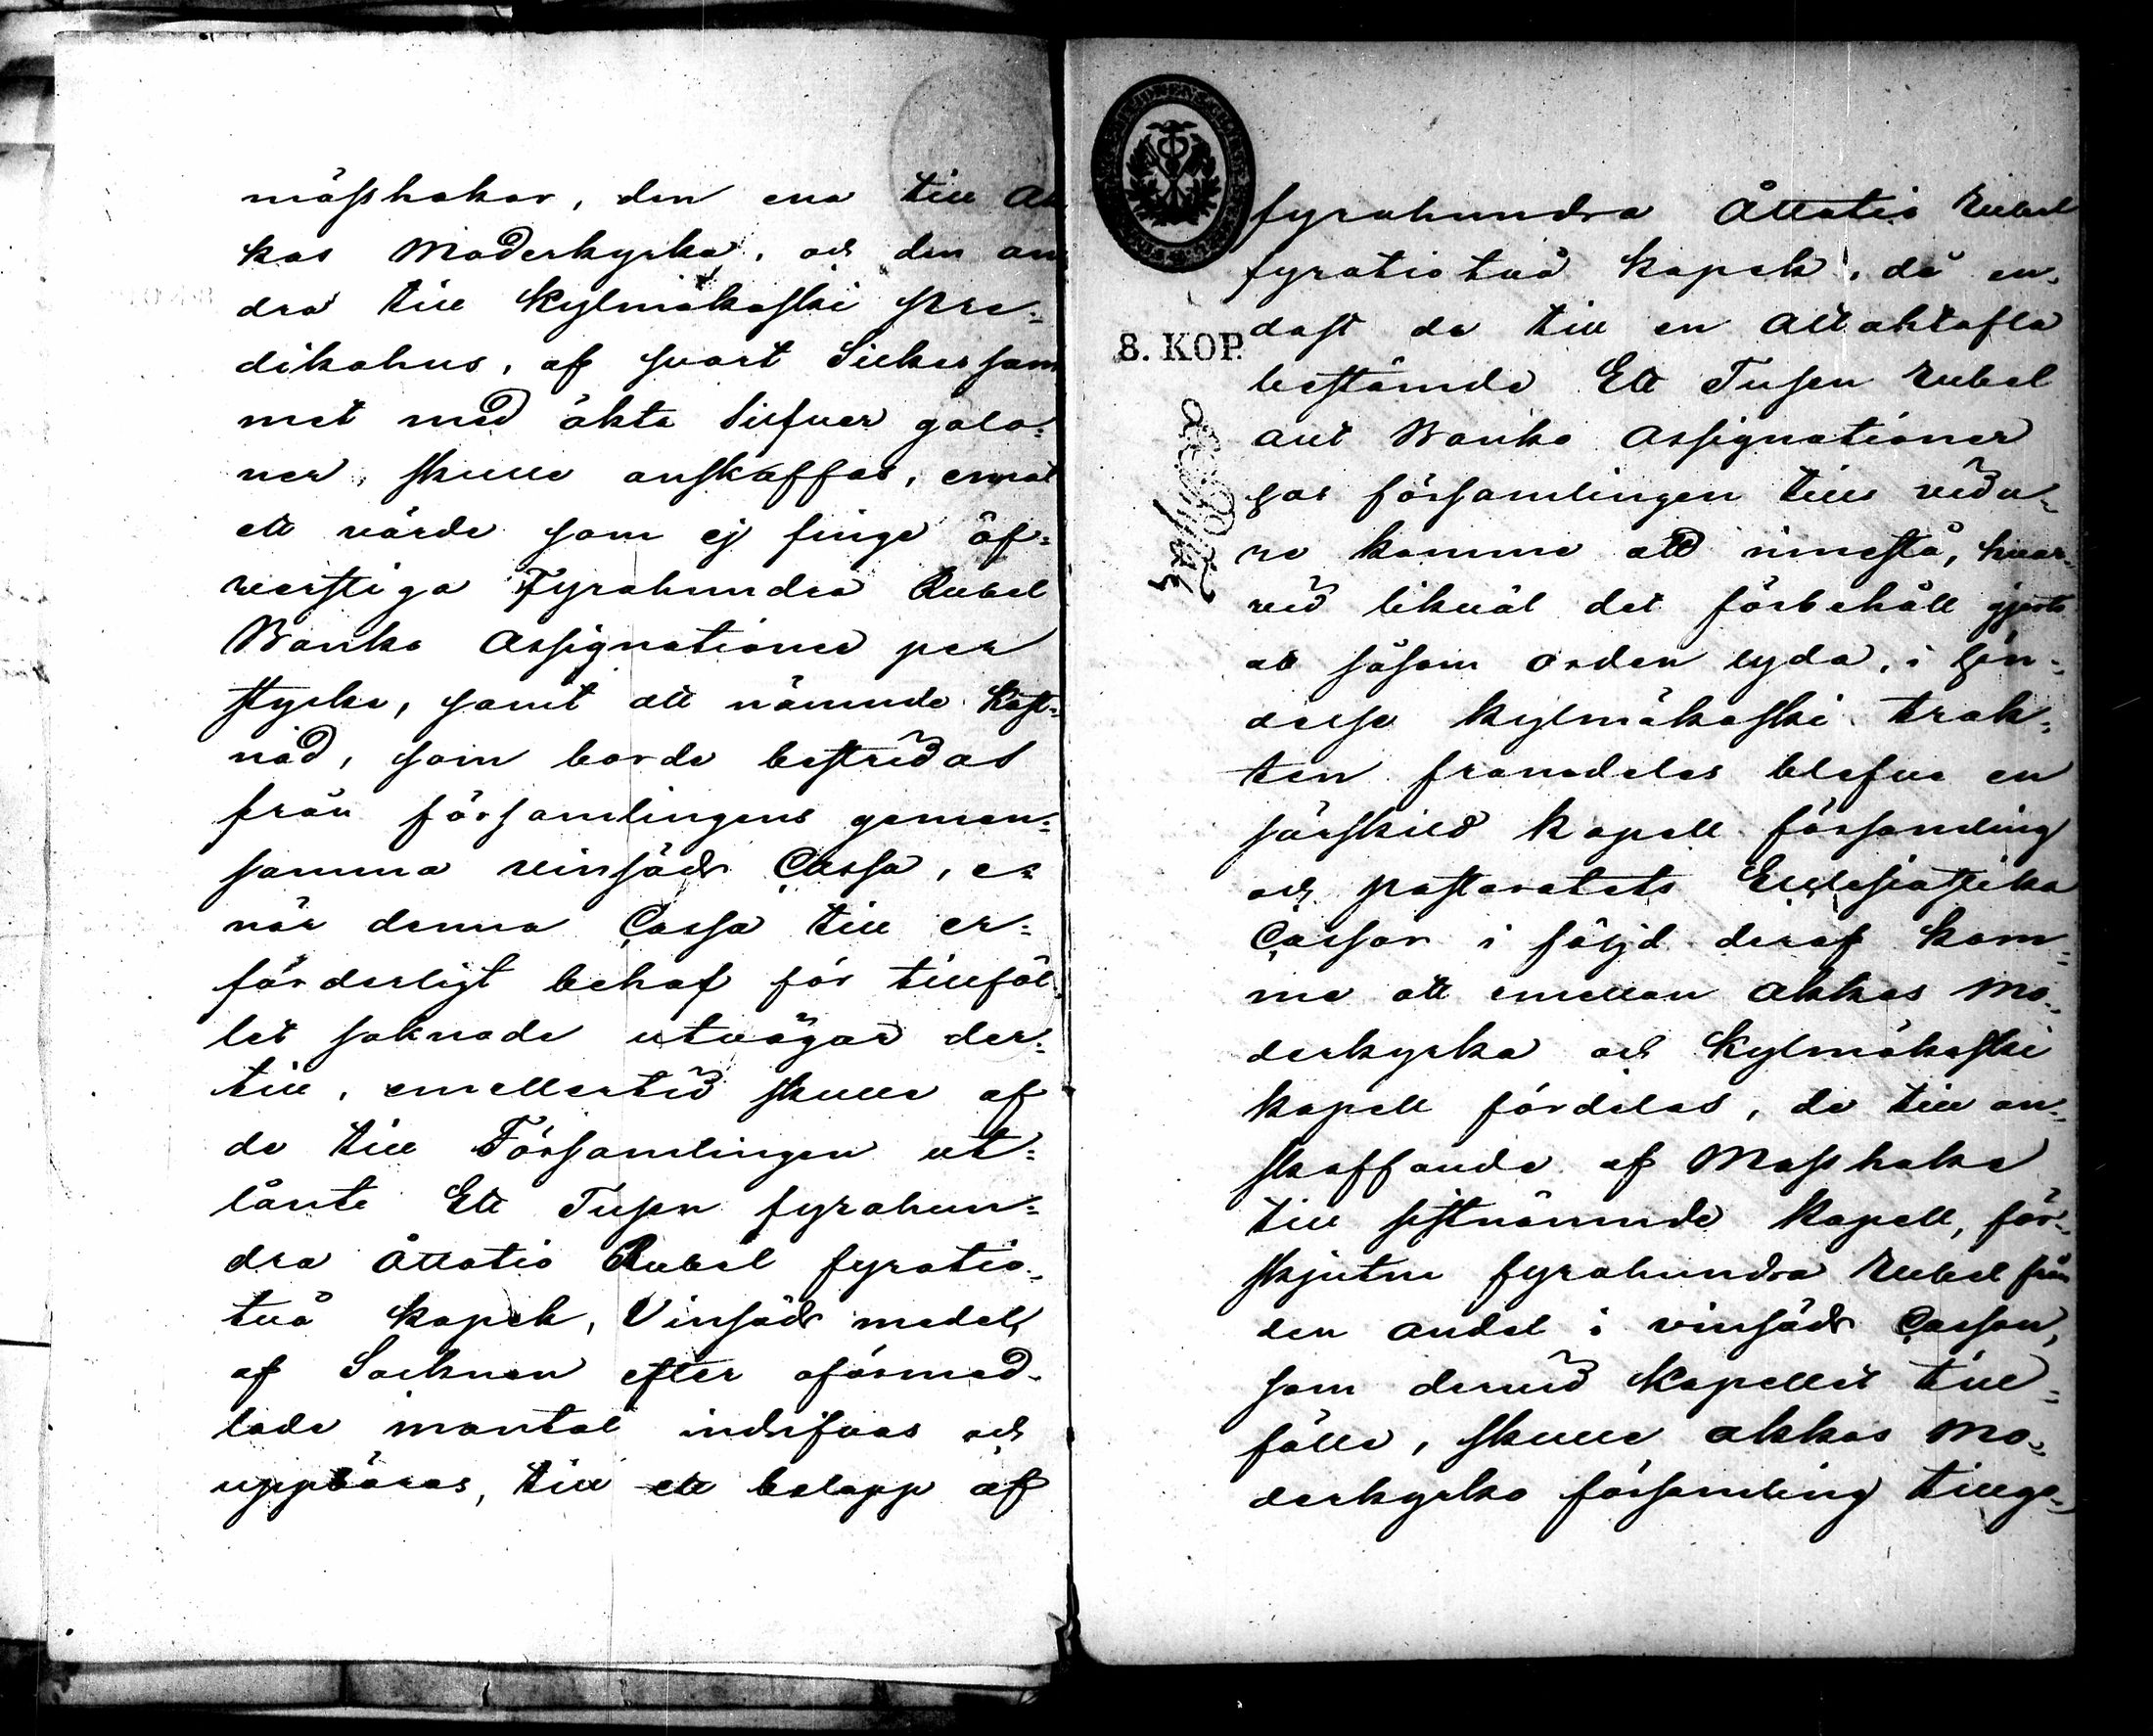 mässhakar, den ena till Ak
kas Moderkyrka, och den an
dra till Kylmäkoski Pre-
dikohus, af svart Silkessam
met med äkta Silfver galo-
ner, skulle anskaffas, emot
ett värde som ej finge öf-
verstiga Fyrahundra Rubel
Banko Assignationer per
stycke, samt att nämnde kost-
nad, som borde bestridas
från församlingens gemen-
samma vinsäds Cassa, e-
när denna Cassa till er-
forderligt behof för tillfäl-
let saknade utvägar der-
till, emellertid skulle af
de till Församlingen ut-
lånte Ett Tusen fyrahun-
dra Åttatio Rubel fyratio-
två kopek, Vinsäds medel,
af Socknen efter oförmed-
lade mantal indrifvas och
uppbäras, till ett belopp af
fyrahundra Åttatio Rubel
fyratiotvå kopek, då en-
dast de till en Altartafla
bestämde Ett Tusen Rubel
allt Banko Assignationer
hos församlingen tills vida-
re komme att innestå, hvar-
vid likväl det förbehåll gjorts
att såsom orden lyda, i hän-
delse Kylmäkoski trak-
ten framdeles blefve en
särskild Kapell församling
och pastoratets Ecclesiastika
Cassor i följd deraf kom-
me att emellan Akkas Mo-
derkyrka och Kylmäkoski
kapell fördelas, de till an-
skaffande af Masshake
till sistnämnde Kapell, för-
skjutne fyrahundra Rubel från
den andel i vinsäds Cassan,
som dervid Kapellet till-
fölle, skulle Akkas Mo-
derkyrko församling tillgo-
8. KOP.